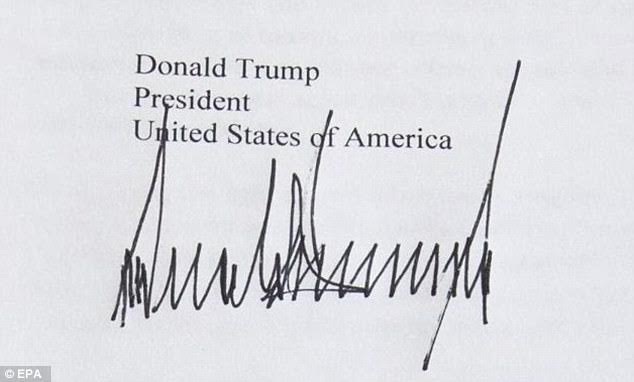 Donald Trump
President
United States of America
© EPA